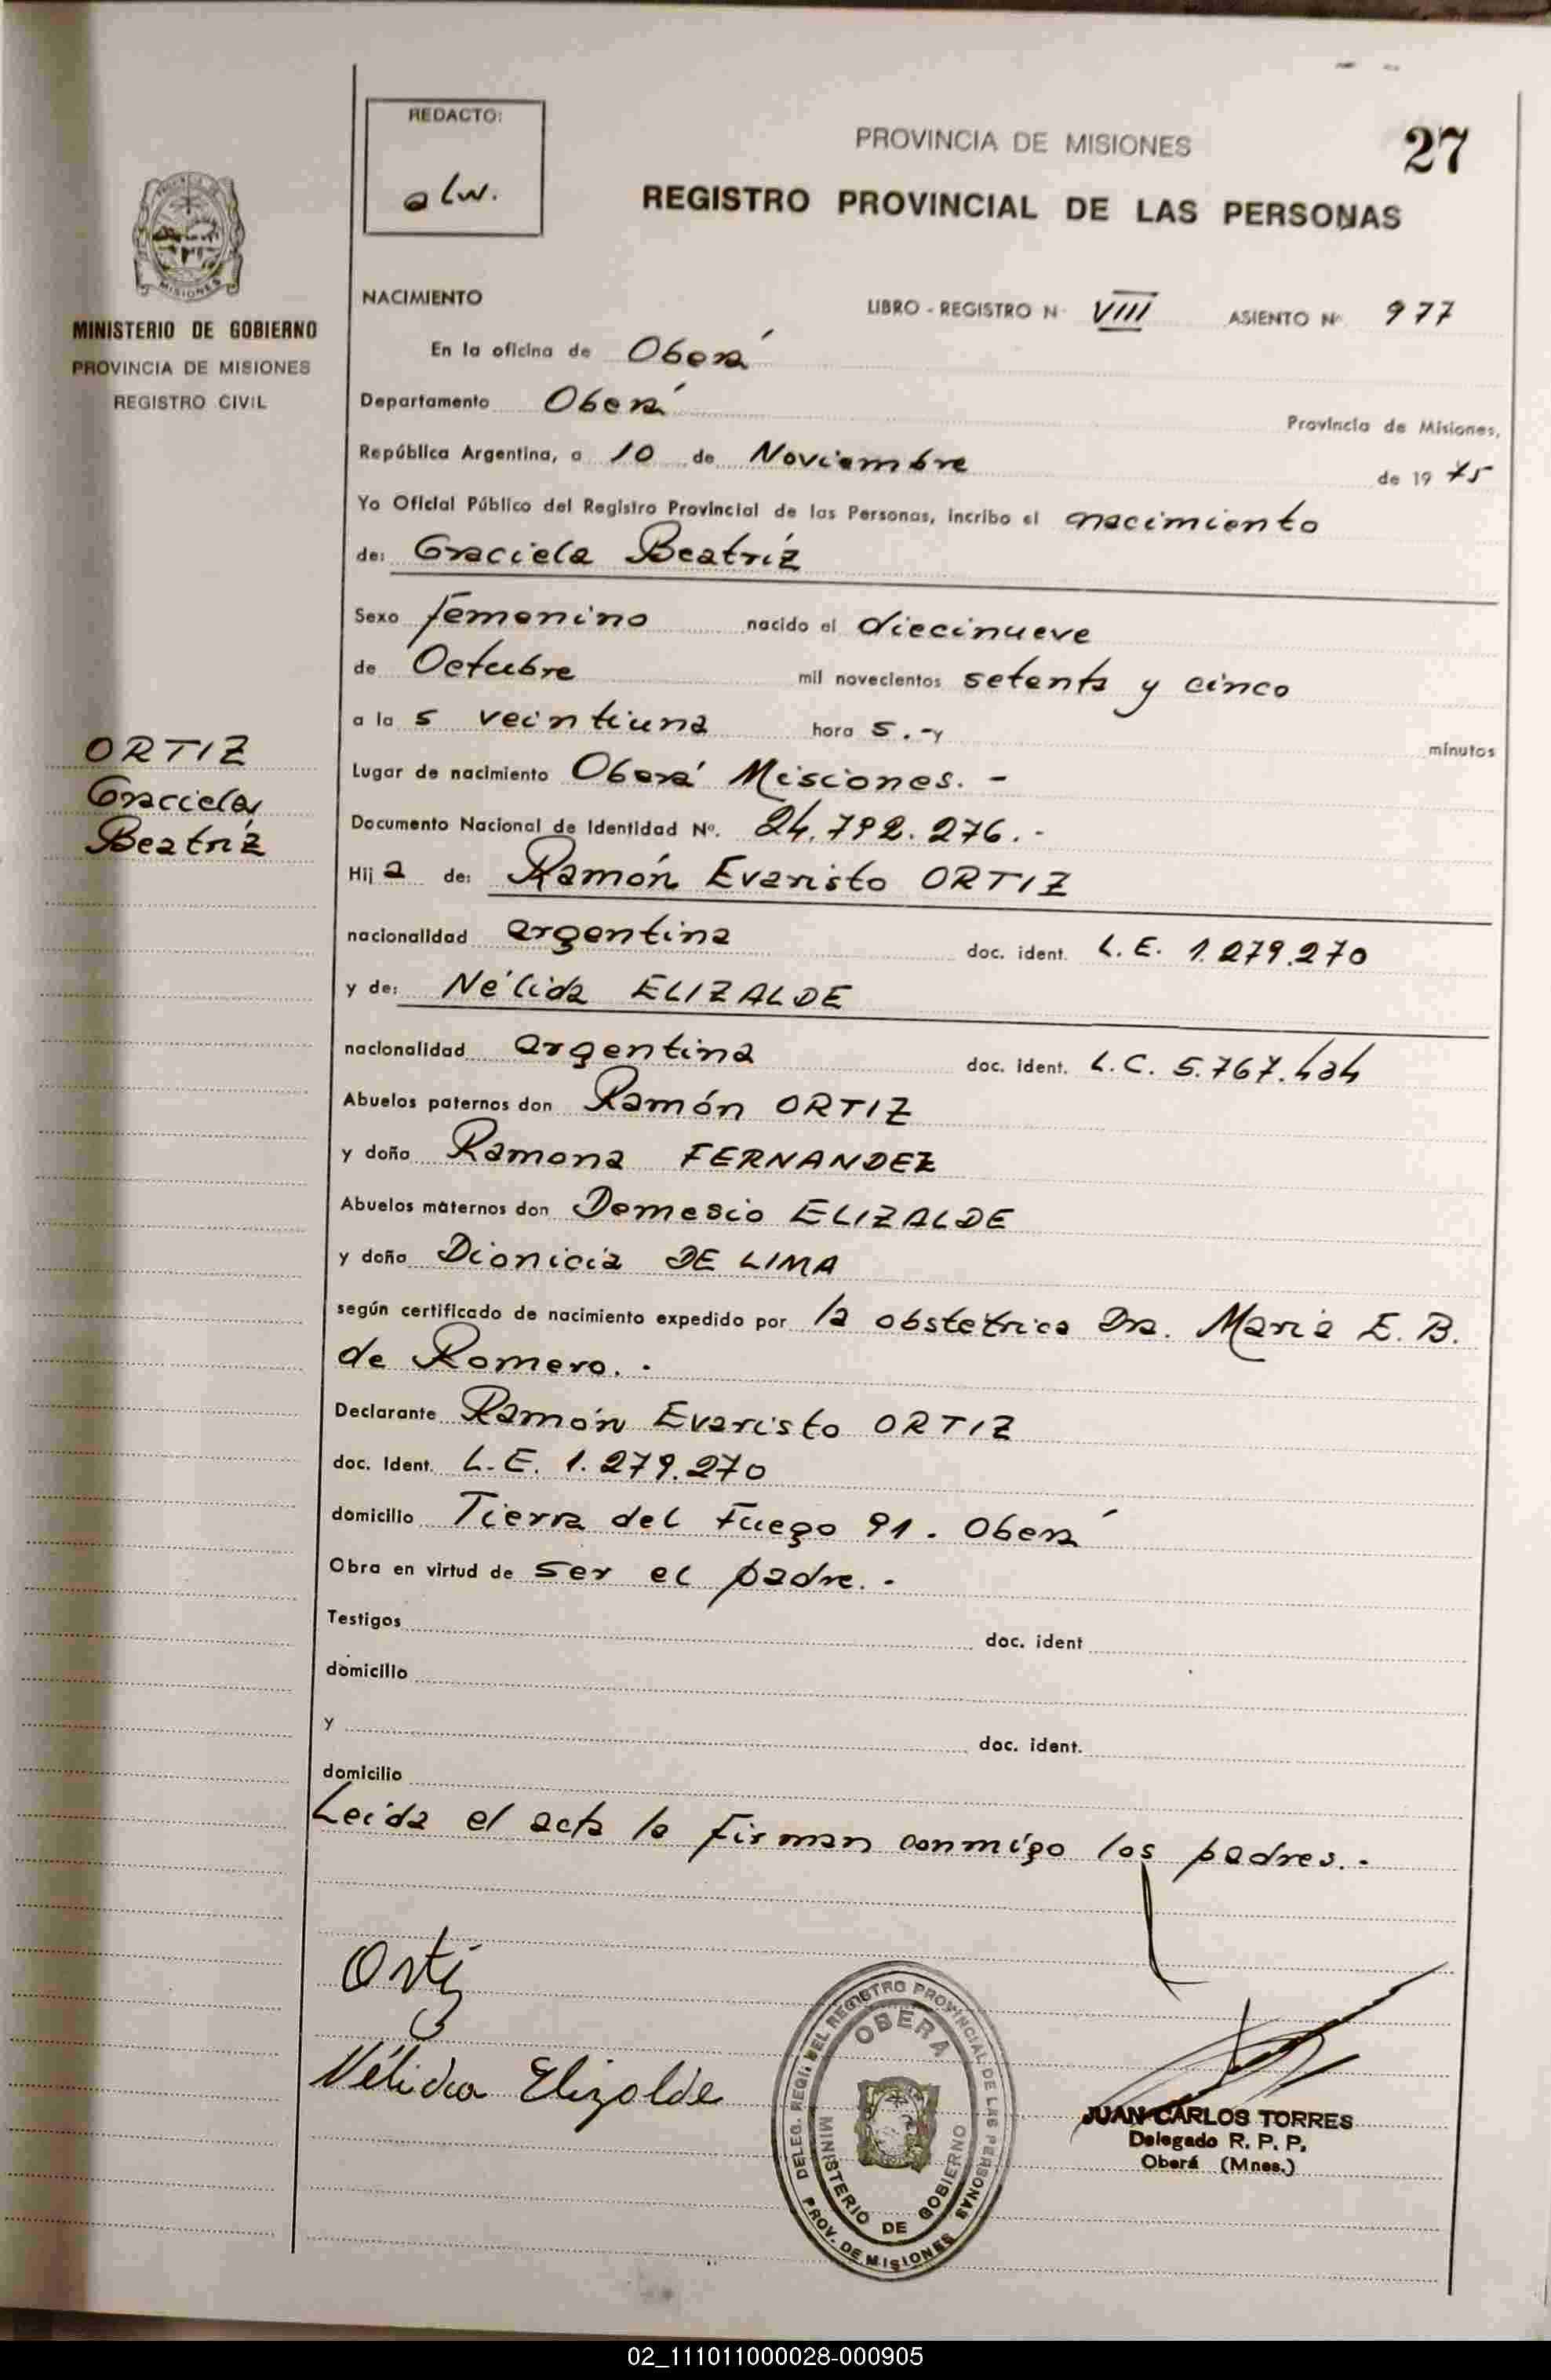 REDACTO:
alw.
PROVINCIA DE MISIONES
27
REGISTRO PROVINCIAL DE LAS PERSONAS
MISIONES
MINISTERIO DE GOBIERNO
PROVINCIA DE MISIONES
REGISTRO CIVIL
NACIMIENTO
LIBRO - REGISTRO N° VIII ASIENTO N° 977
En la oficina de Oberá
Departamento Oberá
Provincia de Misiones,
República Argentina, a 10 de Noviembre de 1975
Yo Oficial Público del Registro Provincial de las Personas, incribo el nacimiento
de: Graciela Beatríz
Sexo femenino nacido el diecinueve
de Octubre mil novecientos setenta y cinco
a la s veintiuna hora s.-y minutos
ORTIZ
Graciela
Beatríz
Lugar de nacimiento Oberá Misiones. -
Documento Nacional de Identidad N°. 24.792.276.-
Hij a de: Ramón Evaristo ORTIZ
nacionalidad argentina doc. ident. L.E. 1.279.270
y de: Nélida ELIZALDE
nacionalidad argentina doc. ident. L.C. 5.767.434
Abuelos paternos don Ramón ORTIZ
y doña Ramona FERNANDEZ
Abuelos maternos don Demesio ELIZALDE
y doña Dionicia DE LIMA
según certificado de nacimiento expedido por la obstetrica Dra. Maria E. B.
de Romero. -
Declarante Ramón Evaristo ORTIZ
doc. Ident. L.E. 1.279.270
domicilio Tierra del Fuego 91. Oberá
Obra en virtud de ser el padre. -
Testigos doc. ident
domicilio
y doc. ident.
domicilio
Leida el acta la firman conmigo los padres. -
Ortiz
Nélida Elizalde
DELEG. REGI. DEL REGISTRO PROVINCIAL DE LAS PERSONAS
OBERA
MINISTERIO DE GOBIERNO
PROV. DE MISIONES
JUAN CARLOS TORRES
Delegado R. P. P.
Oberá (Mnes.)
02_111011000028-000905